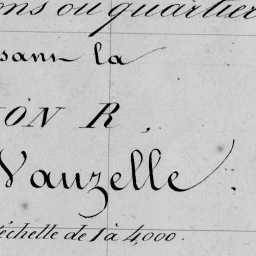 ons ou quartier
dans la
ION R.
Vauzelle.
l'échelle de 1 à 4,000.